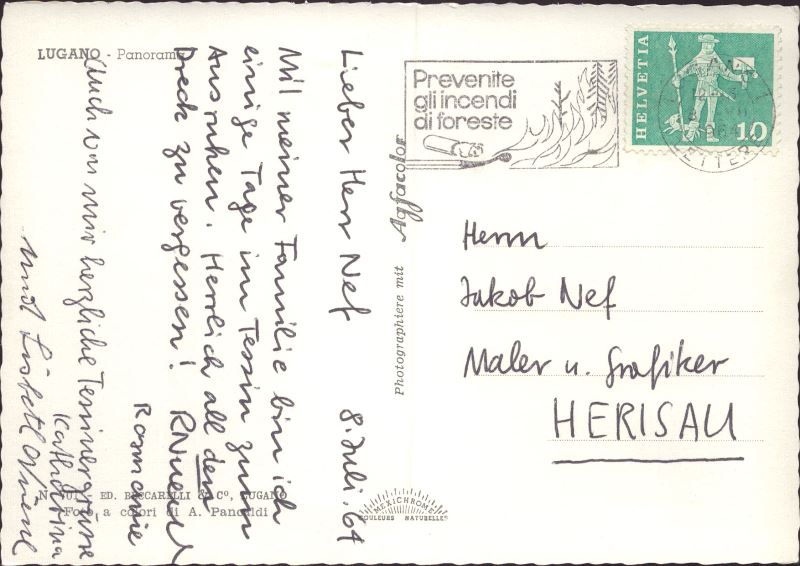 LUGANO - Panorama
Lieber Herr Nef 8. Juli. 64
Mit meiner Familie bin ich
einige Tage im Tessin zum
Ausruhen. Herrlich all dem
Dreck zu vergessen!
Rosmarie
Auch von mir herzliche Tessinergrüsse
Katharina
und Lisbeth
N. ED. BECCARELLI & Cº, LUGANO
Foto a colori di A. Pancaldi
MEXICHROME
COULEURS NATURELLES
Photographiere mit Agfacolor
Prevenite
gli incendi
di foreste
HELVETIA
10
Herrn
Jakob Nef
Maler u. Grafiker
HERISAU